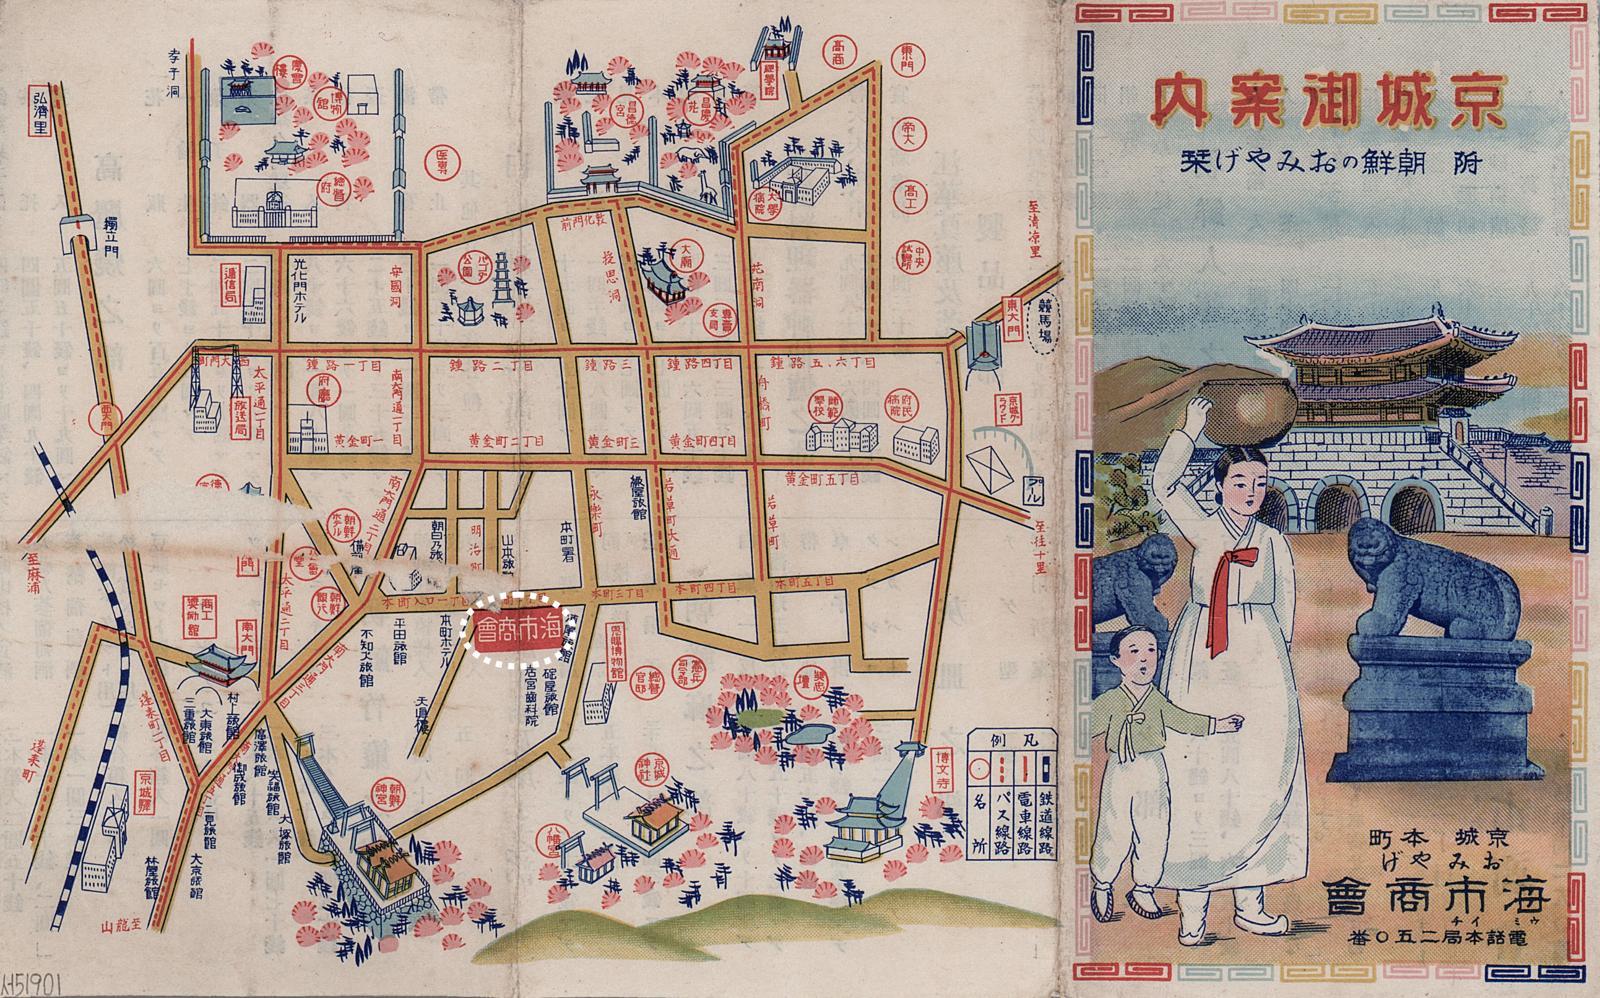 京城御案内
附 朝鮮のおみやげ栞
京城本町
おみやげ
海市商會
ウミイチ
電話本局二五〇番
孝子洞
弘濟里
獨立門
慶會樓
博物館
總督府
医専
遞信局
光化門ホテル
安國洞
パゴダ公園
敦化門前
授恩洞
昌德宮
昌慶苑
經學院
高商
東門
帝大
高工
中央試驗所
大學病院
苑南洞
大廟
專賣支局
至清凉里
東大門
競馬場
西大門町
鍾路一丁目
鍾路二丁目
鍾路三
鍾路四丁目
鍾路五、六丁目
太平通一丁目
放送局
府廳
南大門通一丁目
黄金町一
黄金町二丁目
黄金町三
黄金町四丁目
黄金町五丁目
舟橋町
師範學校
府民病院
京城グラウンド
プール
至往十里
西大門
至麻浦
朝鮮ホテル
南大門通二丁目
明治町
山本旅館
本町署
永樂町
若草町大通
若草町
太平通二丁目
朝鮮銀行
本町入口一丁目
本町三丁目
本町四丁目
本町五丁目
海市商會
商工奬勵館
南大門
不知火旅館
平田旅館
本町ホテル
天眞樓
恩賜博物館
總督官邸
憲兵司令部
奬忠壇
博文寺
蓬萊町一丁目
蓬萊町
三重旅館
大東旅館
村上旅館
南大門通三丁目
御成旅館
笑福旅館
大塚旅館
二見旅館
大京旅館
林屋旅館
京城驛
至龍山
朝鮮神宮
京城神社
八幡宮
凡例
鉄道線路
電車線路
バス線路
名所
H51901